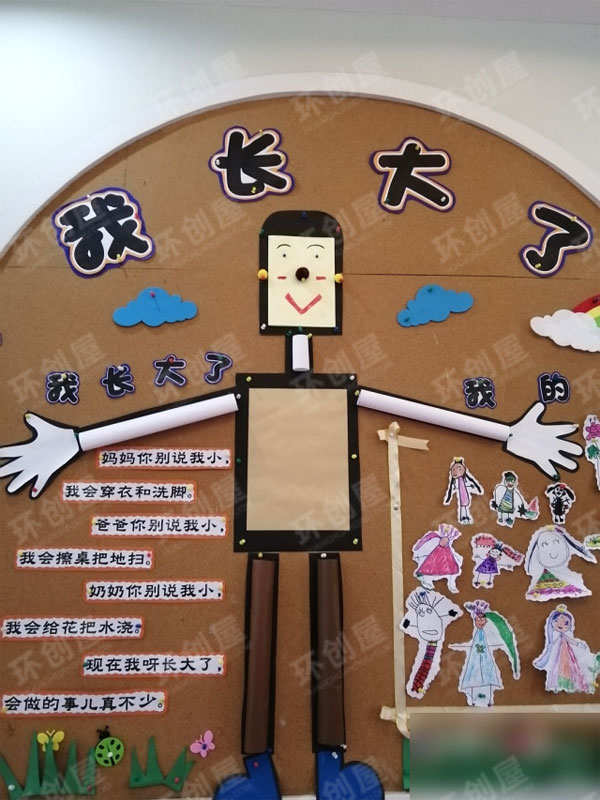 我长大了
我长大了
我的
妈妈你别说我小，
我会穿衣和洗脚。
爸爸你别说我小，
我会擦桌把地扫。
奶奶你别说我小，
我会给花把水浇。
现在我呀长大了，
会做的事儿真不少。
环创屋